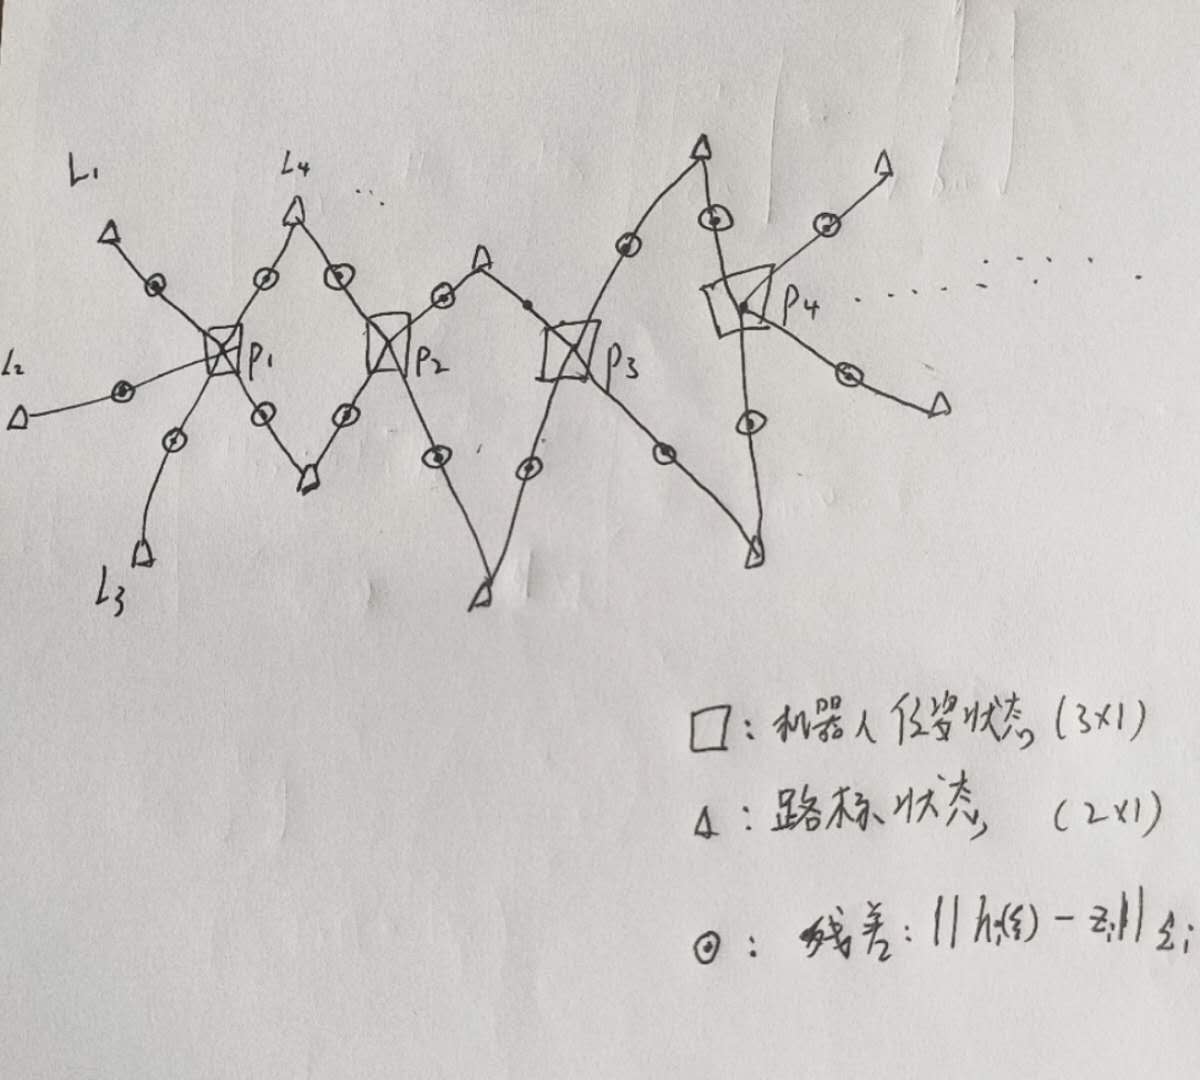 L₁
L₄
L₂
P₁
P₂
P₃
P₄
L₃
□：机器人位姿状态 (3×1)
△：路标状态 (2×1)
⊙：残差：|| hᵢ(ξ) - zᵢ || Σᵢ